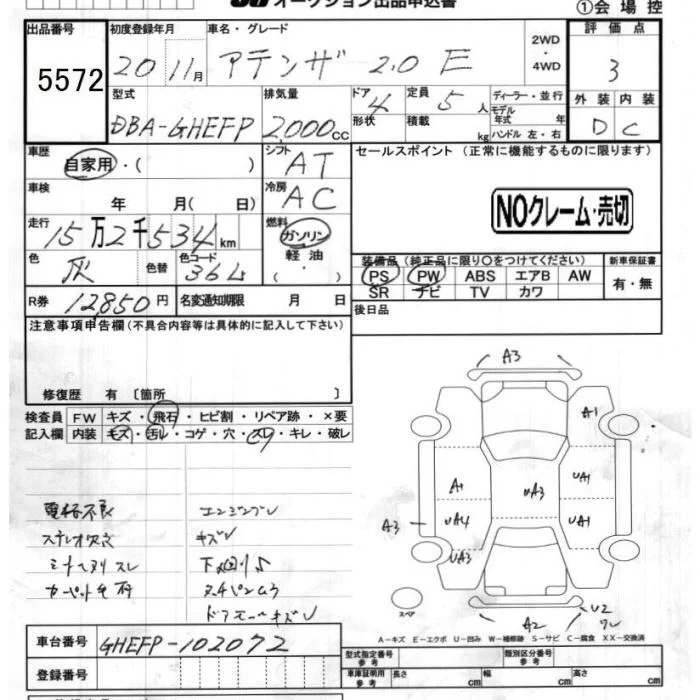 オークション出品申込書
①会場控
出品番号
5572
初度登録年月
20 11月
車名・グレード
アテンザ 2.0 E
2WD
・
4WD
評価点
3
外装 内装
D C
型式
DBA-GHEFP
排気量
2000cc
ドア 4
形状
定員 5人
積載 kg
ディーラー・並行
モデル
年式 年
ハンドル 左・右
車歴
自家用・( )
シフト AT
セールスポイント (正常に機能するものに限ります)
車検
年 月( 日)
冷房 AC
NOクレーム・売切
走行
15万2千534km
燃料
ガソリン
軽油
色 灰
色替
色コード 36L
装備品(純正品に限り○をつけてください)
新車保証書
PS PW ABS エアB AW
SR ナビ TV カワ
有・無
R券 12,850円
名変通知期限 月 日
後日品
注意事項申告欄(不具合内容等は具体的に記入して下さい)
修復歴 有〔箇所 〕
検査員
記入欄
FW キズ・飛石・ヒビ割・リペア跡・×要
内装 キズ・汚レ・コゲ・穴・スレ・キレ・破レ
電格不良
ステレオ欠
シートヘタリ スレ
エンジン
キズ
ドアモールキズ
A3
A1
A1
UA3
UA1
UA4
UA1
A3
UA3
A2
U2
スペア
A-キズ E-エクボ U-凹み W-補修跡 S-サビ C-腐食 XX-交換済
車台番号 GHEFP-102072
登録番号
型式指定番号
参考
類別区分番号
参考
車庫証明用
参考
長さ cm
幅 cm
高さ cm